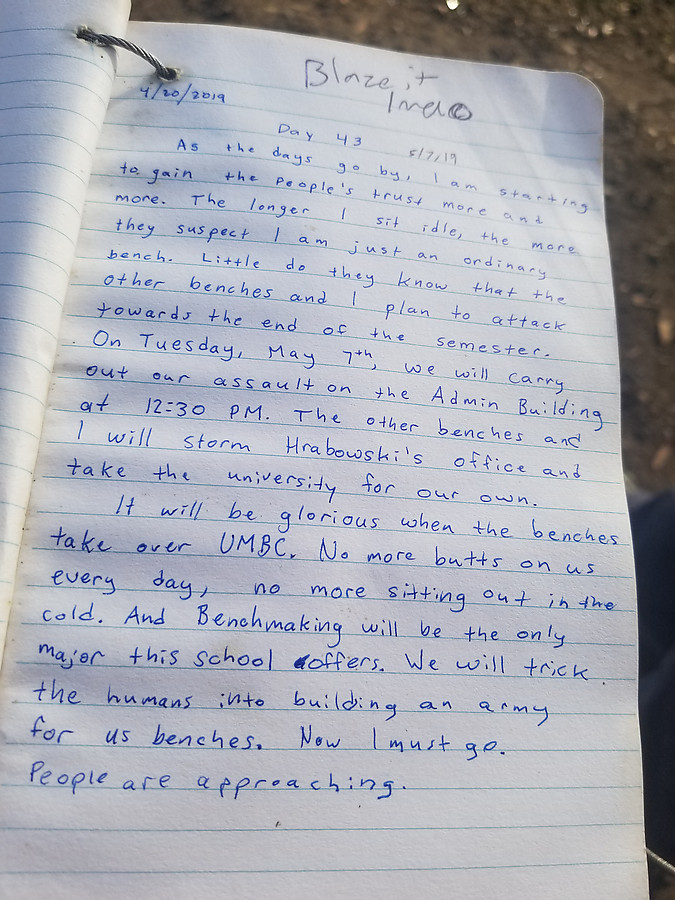 Blaze it
4/20/2019
Day 43
5/7/19
As the days go by, I am starting
to gain the people's trust more and
more. The longer I sit idle, the more
they suspect I am just an ordinary
bench. Little do they know that the
other benches and I plan to attack
towards the end of the semester.
On Tuesday, May 7th, we will carry
out our assault on the Admin Building
at 12:30 PM. The other benches and
I will storm Hrabowski's office and
take the university for our own.
It will be glorious when the benches
take over UMBC. No more butts on us
every day, no more sitting out in the
cold. And Benchmaking will be the only
major this school offers. We will trick
the humans into building an army
for us benches. Now I must go.
People are approaching.